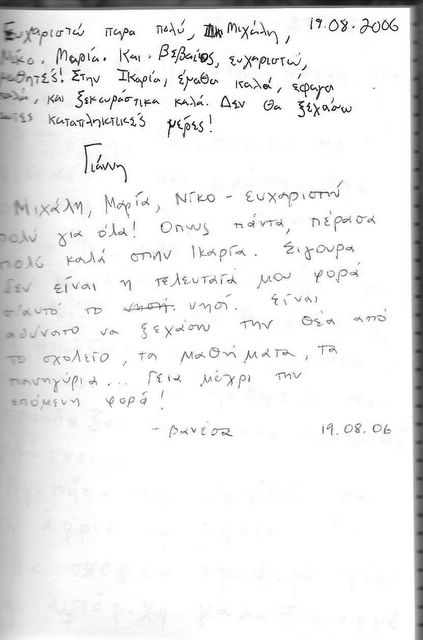 Ευχαριστώ παρα πολύ, Μιχάλη, 19.08.2006
Νίκο. Μαρία. Και. Βεβαίος, ευχαριστώ,
μαθητές! Στην Ικαρία, έμαθα καλά, έφαγα
καλά, και ξεκουράστικα καλά. Δεν θα ξεχάσω
αυτές καταπληκτικές μέρες!
Γιάννη
Μιχάλη, Μαρία, Νίκο - ευχαριστώ
πολύ για όλα! Οπως πάντα, πέρασα
πολύ καλά στην Ικαρία. Σιγουρα
δεν είναι η τελευταία μου φορά
σ'αυτό το νησή. νησί. Είναι
αδύνατο να ξεχάσω την θέα από
το σχολείο, τα μαθήματα, τα
πανηγύρια... Γεια μέχρι την
επόμενη φορά!
- βανέσα 19.08.06